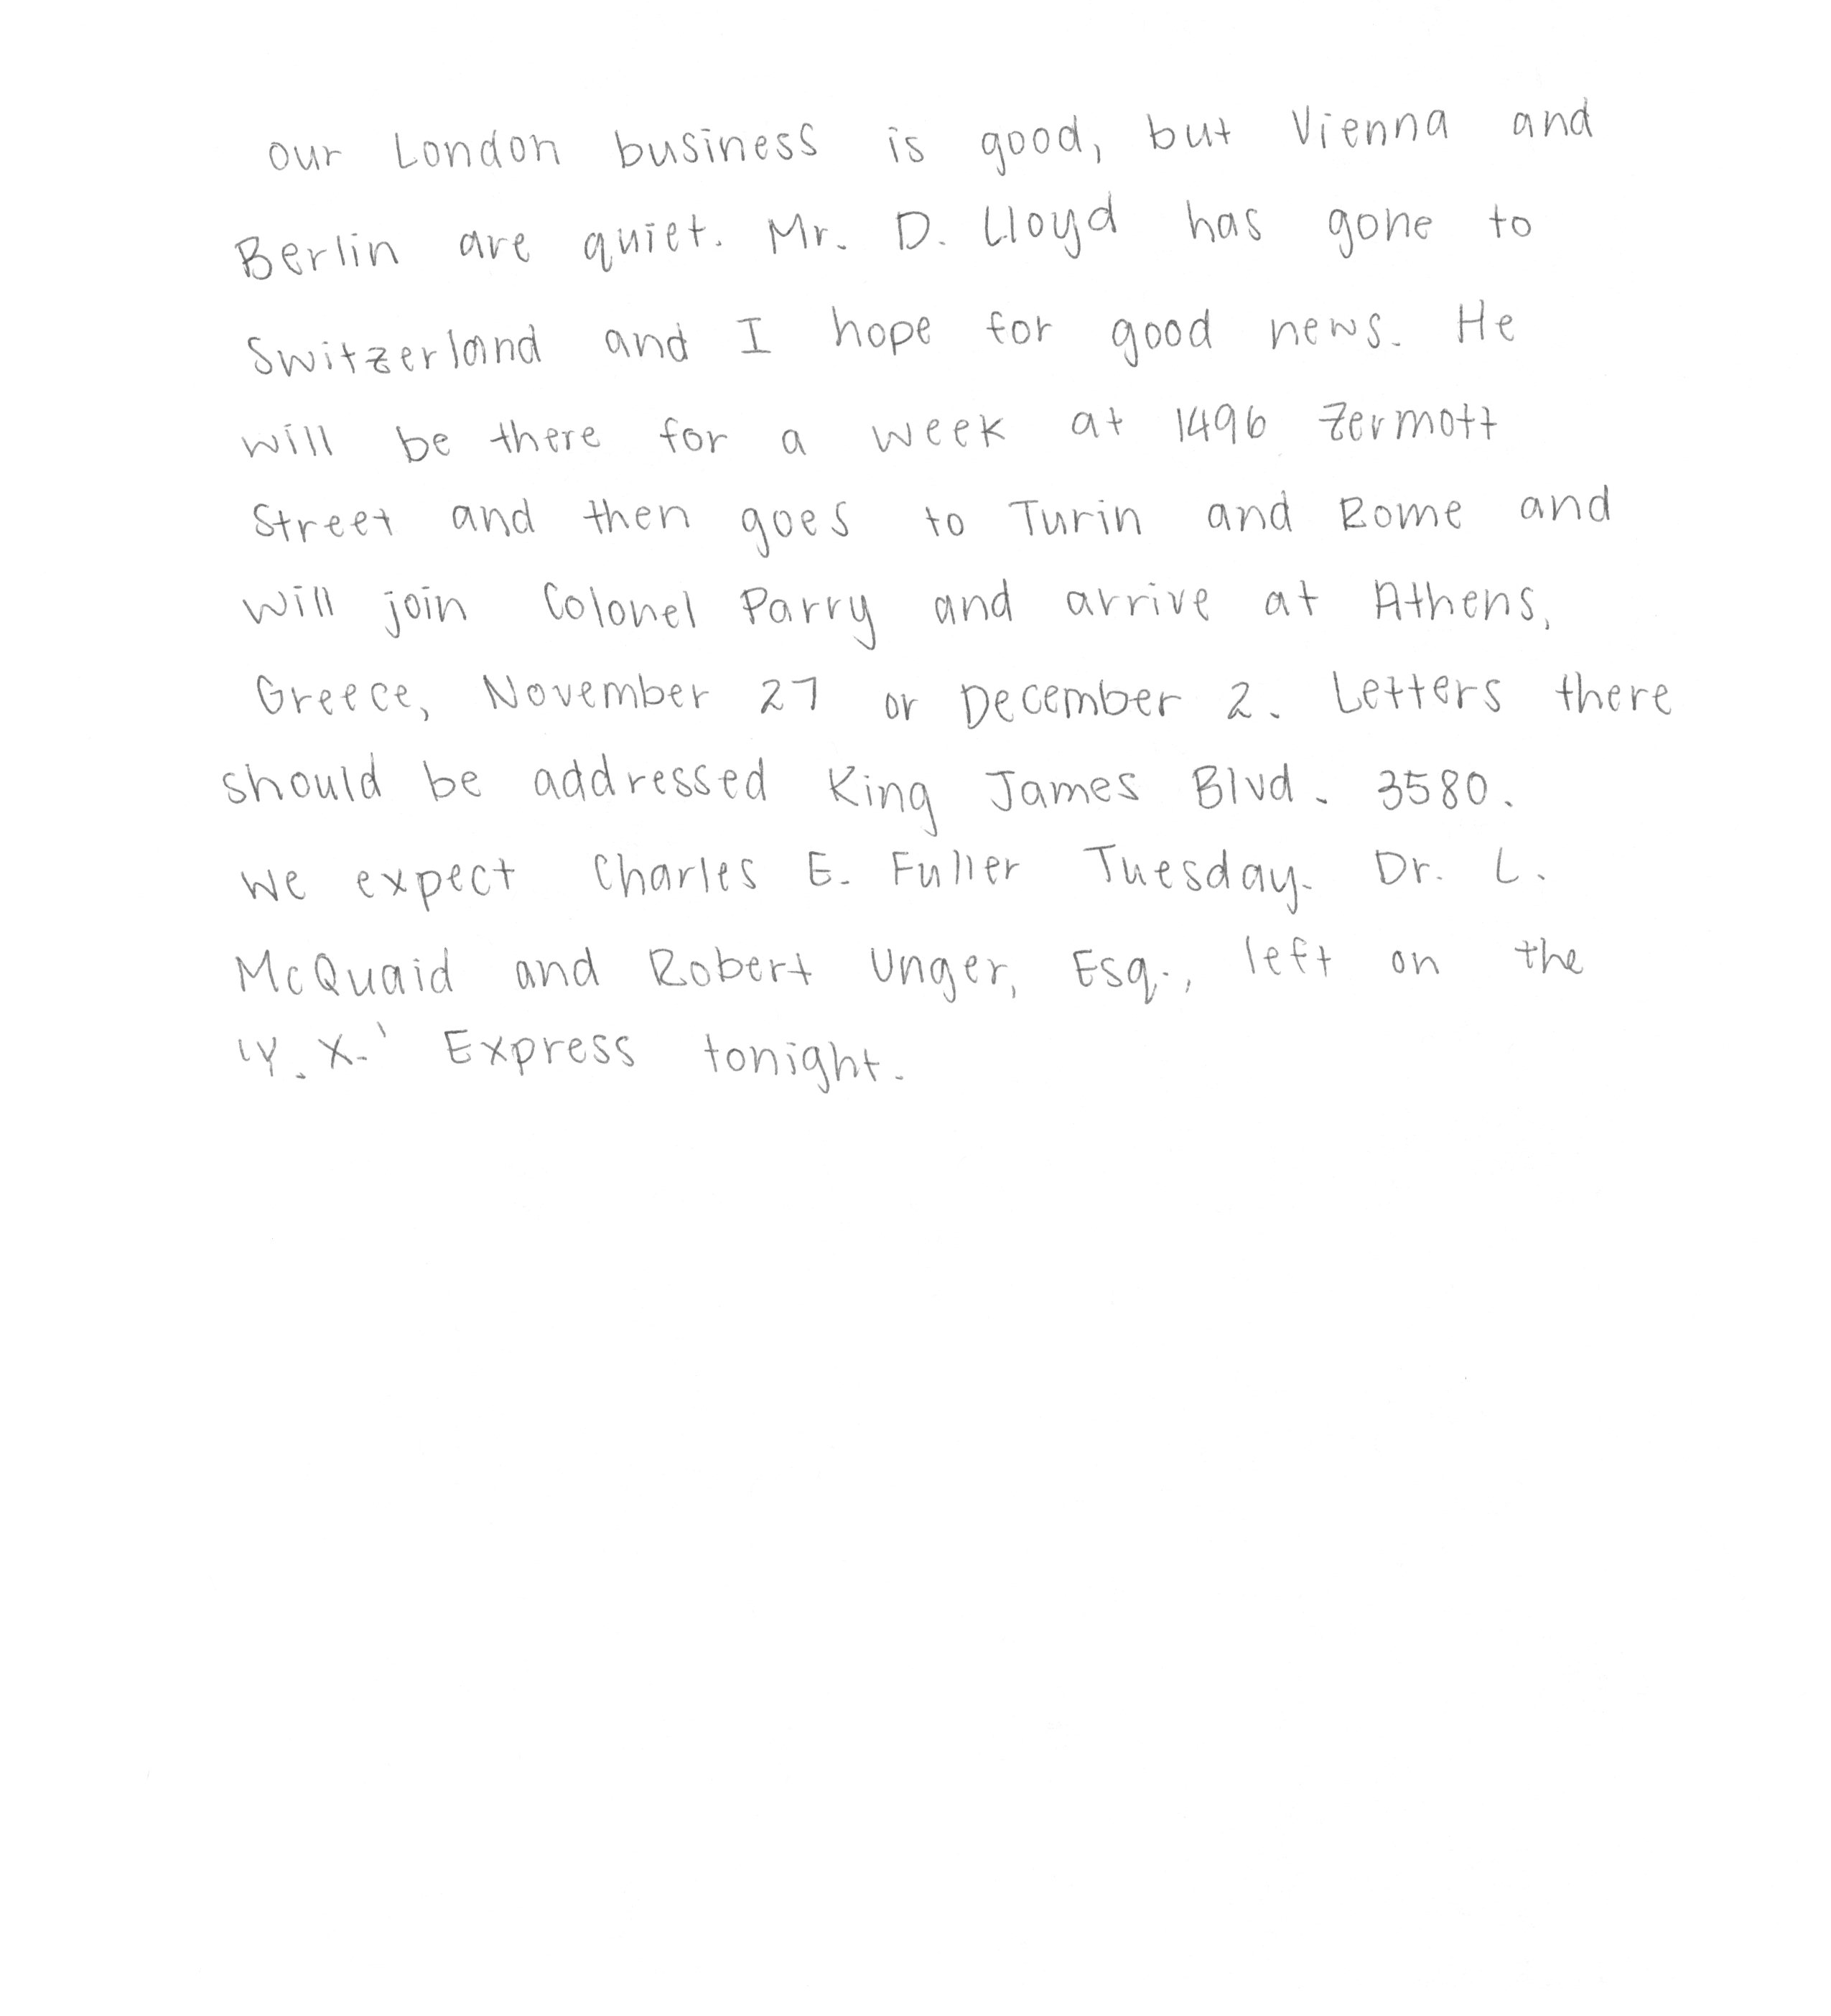 our London business is good, but Vienna and
Berlin are quiet. Mr. D. Lloyd has gone to
Switzerland and I hope for good news. He
will be there for a week at 1496 Zermott
Street and then goes to Turin and Rome and
will join Colonel Parry and arrive at Athens,
Greece, November 27 or December 2. Letters there
should be addressed King James Blvd. 3580.
We expect Charles E. Fuller Tuesday. Dr. L.
McQuaid and Robert Unger, Esq., left on the
'Y. X.' Express tonight.